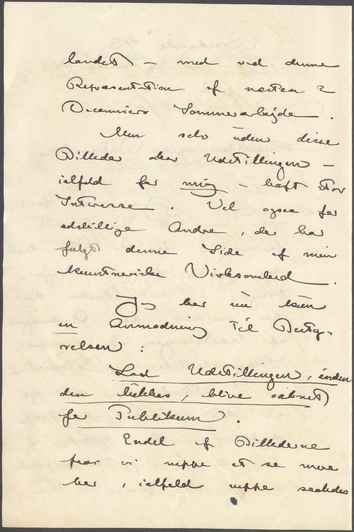 landet – med ved denne
Repræsentation af næsten 2
Decenniers Sommerarbejde.
Men selv uden disse
Billeder har Udstillingen –
ialfald for mig – haft stor
Interesse. Vel ogsaa for
adskillige Andre, der har
fulgt denne Side af min
kunstneriske Virksomhed.
Jeg har nu kun
en Anmodning til Besty-
relsen:
Lad Udstillingen, inden
den lukkes, blive aabnet
for Publikum.
Endel af Billederne
faar vi neppe at se mere
her, ialfald neppe saaledes